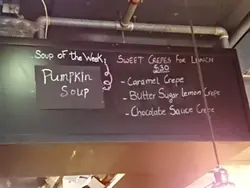 Soup of the Week:
Pumpkin
Soup
Sweet Crepes for Lunch
$30
- Caramel Crepe
- Butter Sugar lemon Crepe
- Chocolate Sauce Crepe